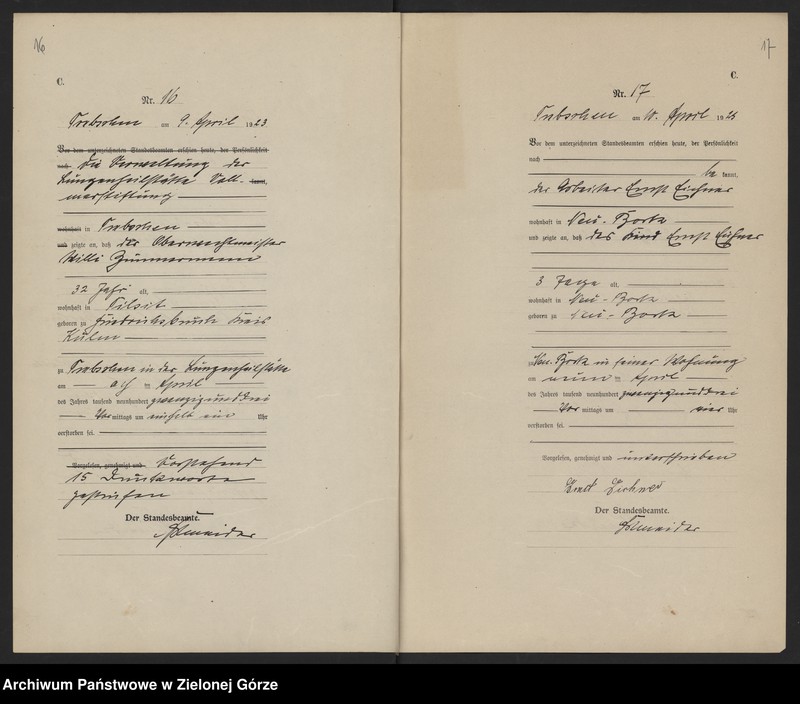 16
C.
Nr. 16
am 9. April 1923
Vor dem unterzeichneten Standesbeamten erschien heute, der Persönlichkeit
nach die Verwaltung der
Lungenheilstätte kannt,
wohnhaft in
und zeigte an, daß der Oberwachtmeister
Willi Zimmermann
32 Jahr alt,
wohnhaft in Tilsit
geboren zu Kreis
zu in der Lungenheilstätte
am te April
des Jahres tausend neunhundert zwanzigunddrei
Vor mittags um ein Uhr
verstorben sei.
Vorgelesen, genehmigt und Vorstehend
15 Druckworte
gestrichen
Der Standesbeamte.
Schneider
17
C.
Nr. 17
am 10. April 1923
Vor dem unterzeichneten Standesbeamten erschien heute, der Persönlichkeit
nach
be kannt,
der Arbeiter Ernst Eichner
wohnhaft in Neu-
und zeigte an, daß das Kind Ernst Eichner
3 Tage alt,
wohnhaft in Neu-
geboren zu Neu-
zu Neu- in seiner Wohnung
am neun te April
des Jahres tausend neunhundert zwanzigunddrei
Vor mittags um vier Uhr
verstorben sei.
Vorgelesen, genehmigt und unterschrieben
Ernst Eichner
Der Standesbeamte.
Schneider
Archiwum Państwowe w Zielonej Górze